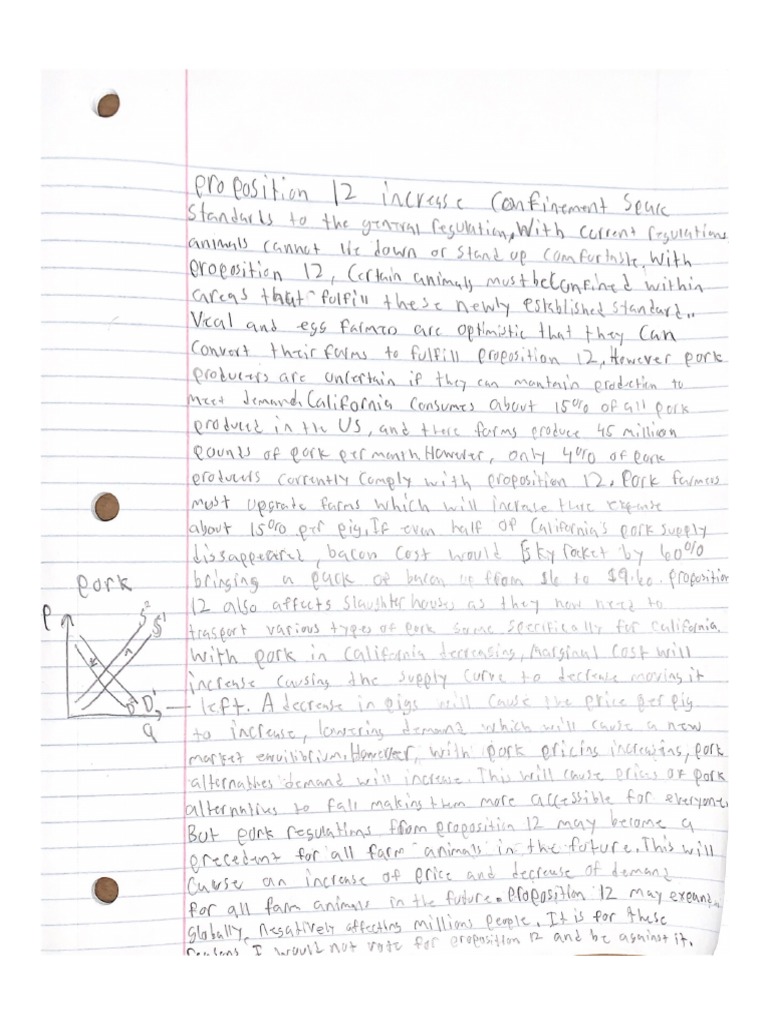 Proposition 12 increase confinement space
standards to the general regulation, With current regulations
animals cannot lie down or stand up comfortable. With
proposition 12, certain animals must be confined within
areas that fulfill these newly established standard..
Veal and egg farmers are optimistic that they can
convert their farms to fulfill proposition 12, However pork
producers are uncertain if they can mantain production to
meet demand. California consumes about 15% of all pork
produced in the US, and there farms produce 45 million
pounds of pork per month. However, only 4% of pork
producers currently comply with proposition 12. Pork farmers
must upgrate farms which will increase there expense
about 15% per pig. If even half of California's pork supply
dissappeared, bacon cost would sky rocket by 60%
bringing a pack of bacon up from $6 to $9.60. proposition
12 also affects slaughter houses as they now need to
trasport various types of pork some specifically for california.
With pork in California decreasing, Marginal cost will
increase causing the supply curve to decrease moving it
left. A decrease in pigs will cause the price per pig
to increase, lowering demand which will cause a new
market equilibrium. However, with pork pricing increasing, pork
demand will increase. This will cause prices of pork
to fall making them more accessible for everyone.
But pork regulations from proposition 12 may become a
precedent for all farm animals in the future. This will
cause an increase of price and decrease of demand
for all farm animals in the future. Proposition 12 may expand
globally, negatively affecting millions people. It is for these
reasons I would not vote for proposition 12 and be against it.
pork
P
S²
S¹
D² D¹
Q